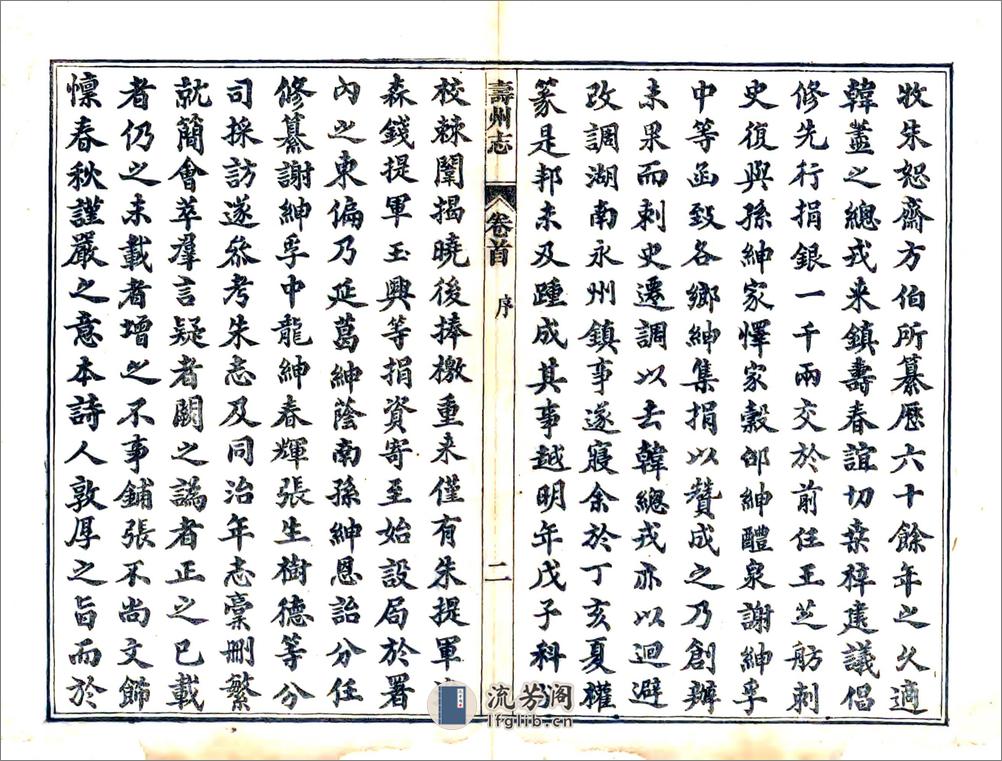 牧朱恕齋方伯所纂歷六十餘年之久適
韓藎之總戎来鎮壽春誼切桒梓建議倡
修先行捐銀一千兩交於前任王芝舫刺
史復與孫紳家懌家穀邰紳醴泉謝紳孚
中等函致各鄉紳集捐以贊成之乃創辦
未果而刺史遷調以去韓總戎亦以迴避
改調湖南永州鎮事遂寢余於丁亥夏權
篆是邦未及踵成其事越明年戊子科
壽州志 卷首 序 二
校棘闈揭曉後捧檄重来僅有朱提軍
森錢提軍玉興等捐資寄至始設局於署
內之東偏乃延葛紳蔭南孫紳恩詒分任
修纂謝紳孚中龍紳春輝張生樹德等分
司採訪遂叅考朱志及同治年志稾刪繁
就簡會萃羣言疑者闕之譌者正之已載
者仍之未載者增之不事鋪張不尚文飾
懍春秋謹嚴之意本詩人敦厚之旨而於
流芳阁
lfglib.cn